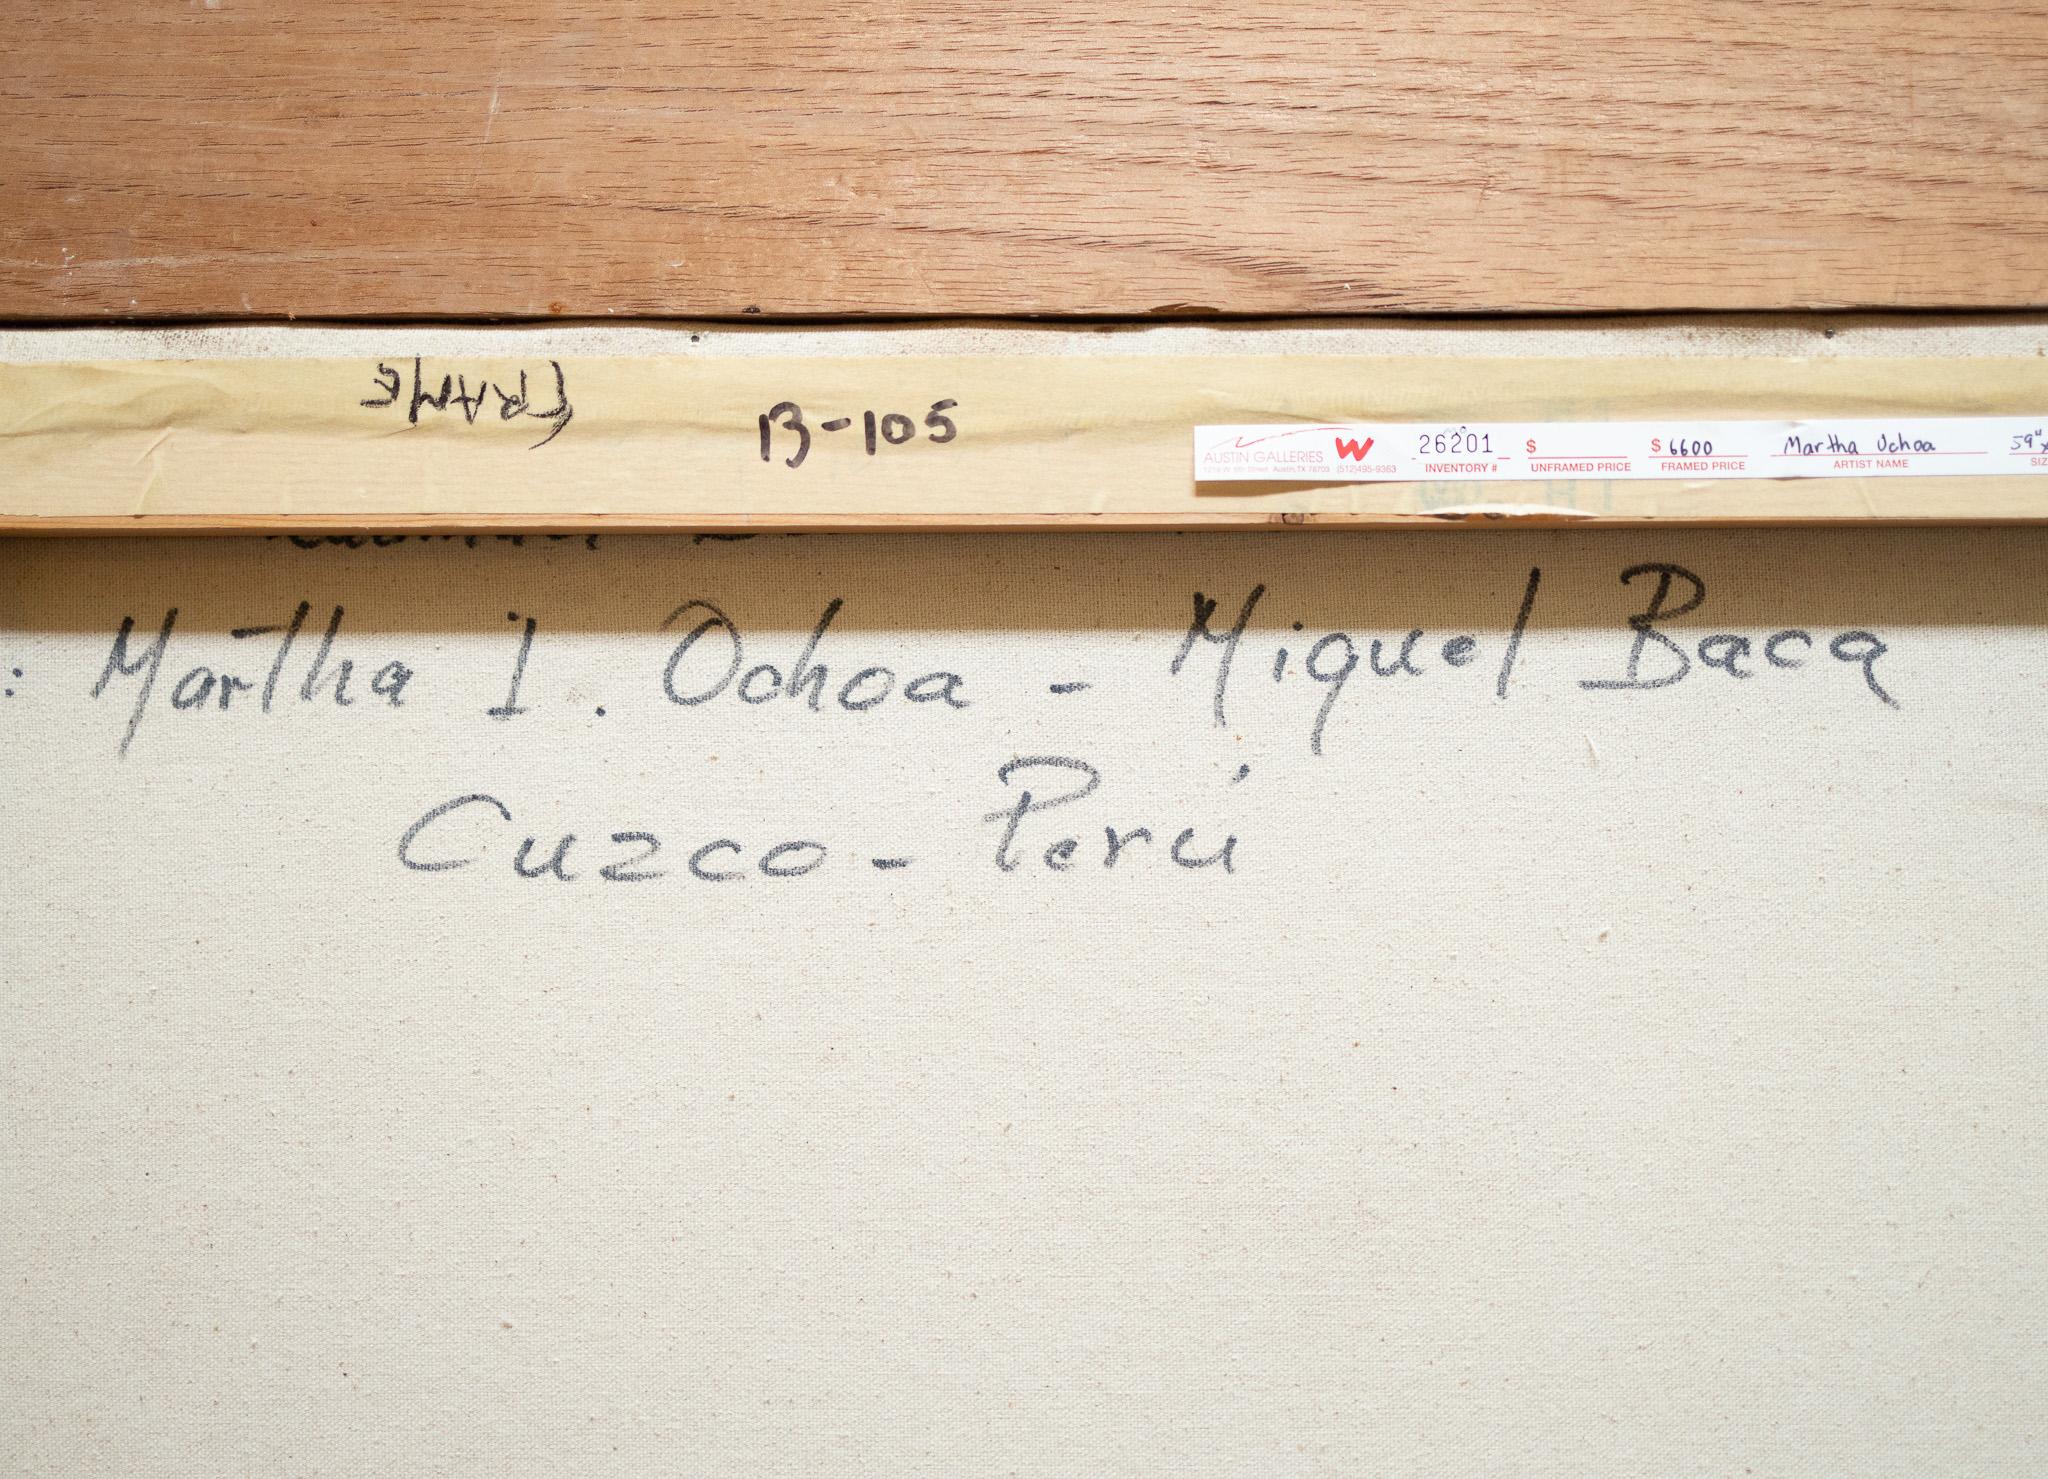 FRAME
B-105
AUSTIN GALLERIES W 26201 $ $ 6600 Martha Ochoa 59"x
1219 W 6th Street Austin, TX 78703 (512)495-9363 INVENTORY # UNFRAMED PRICE FRAMED PRICE ARTIST NAME SIZ
: Martha I. Ochoa - Miguel Baca
Cuzco - Perú